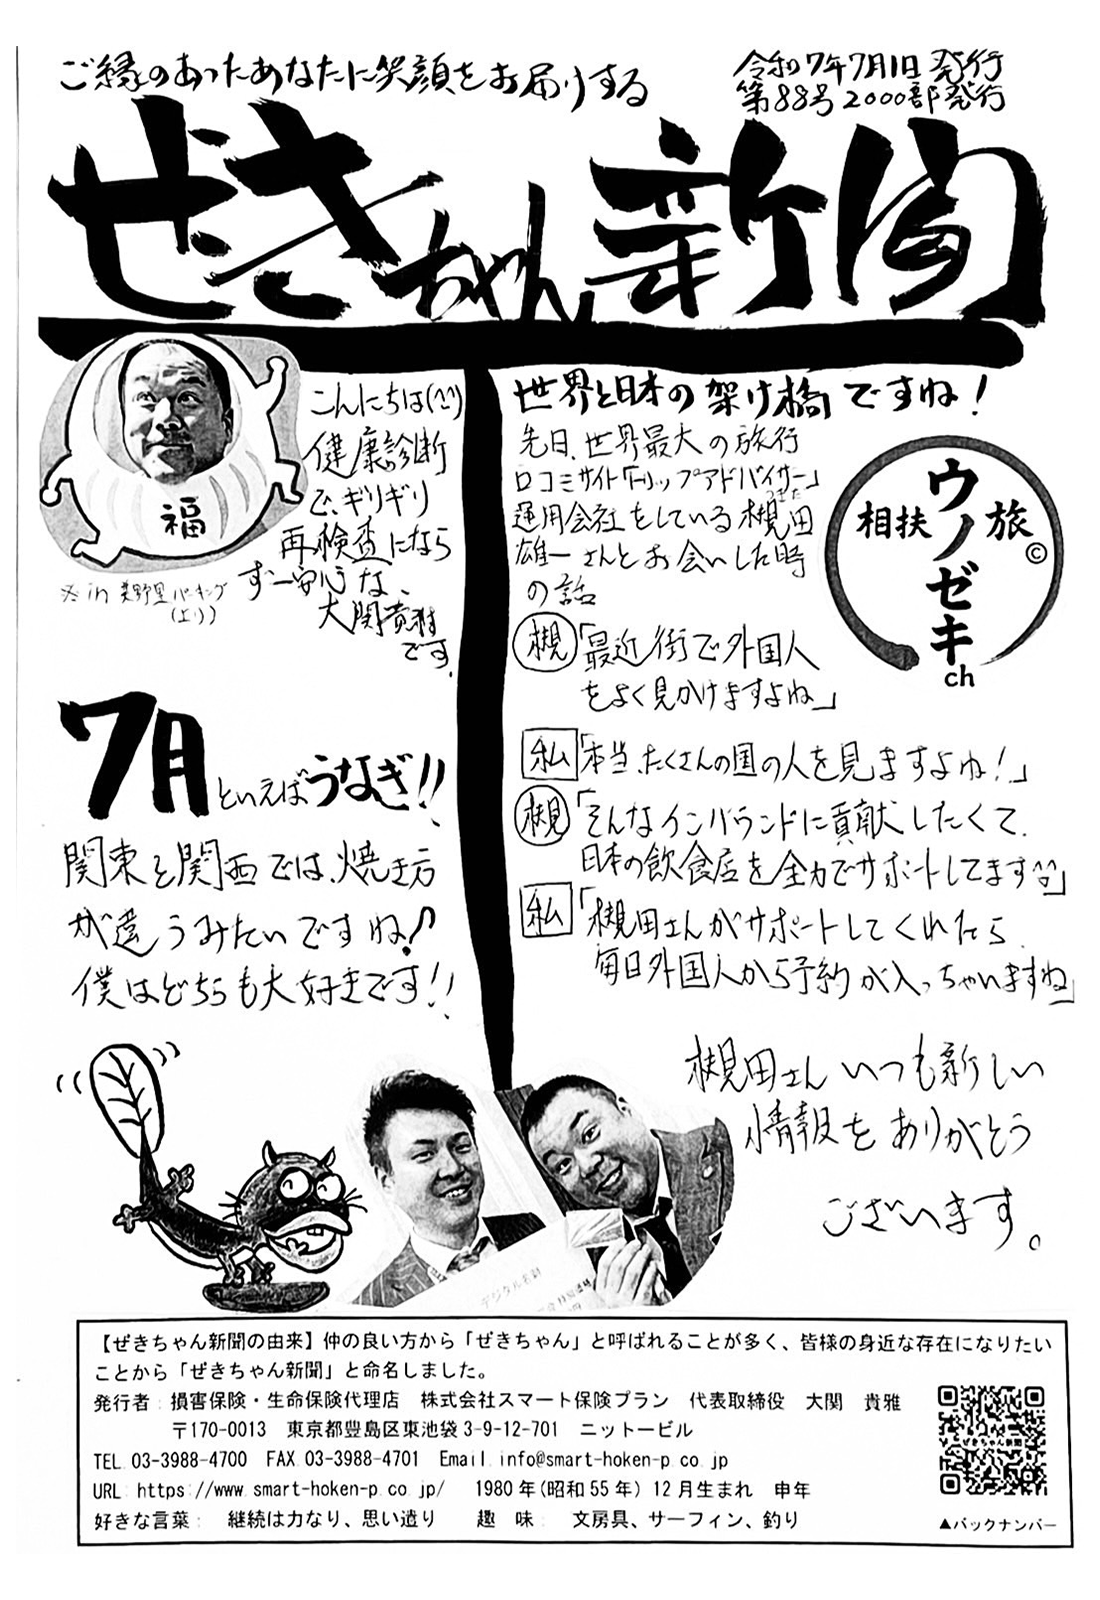 ご縁のあったあなたに笑顔をお届けする
令和7年7月1日発行
第88号2000部発行
ぜきちゃん新聞
福
※in 美野里パーキング
(上り)
こんにちは(^^)
健康診断
で、ギリギリ
再検査になら
ず一安心な、
大関貴雅
です。
7月といえばうなぎ!!
関東と関西では、焼き方
が違うみたいですね!?
僕はどちらも大好きです!!
世界と日本の架け橋ですね!
先日、世界最大の旅行
口コミサイト「トリップアドバイザー」
運用会社をしている槻田
雄一さんとお会いした時
の話
ウノゼキch
相扶
旅
©
槻「最近街で外国人
をよく見かけますよね」
私「本当、たくさんの国の人を見ますよね!」
槻「そんなインバウンドに貢献したくて、
日本の飲食店を全力でサポートしてます^^」
私「槻田さんがサポートしてくれたら
毎日外国人から予約が入っちゃいますね」
槻田さんいつも新しい
情報をありがとう
ございます。
デジタル名刺
【ぜきちゃん新聞の由来】仲の良い方から「ぜきちゃん」と呼ばれることが多く、皆様の身近な存在になりたい
ことから「ぜきちゃん新聞」と命名しました。
発行者:損害保険・生命保険代理店 株式会社スマート保険プラン 代表取締役 大関 貴雅
〒170-0013 東京都豊島区東池袋3-9-12-701 ニットービル
TEL.03-3988-4700 FAX.03-3988-4701 Email.info@smart-hoken-p.co.jp
URL:https://www.smart-hoken-p.co.jp/ 1980年(昭和55年)12月生まれ 申年
好きな言葉: 継続は力なり、思い遣り 趣 味: 文房具、サーフィン、釣り
ぜきちゃん新聞
▲バックナンバー